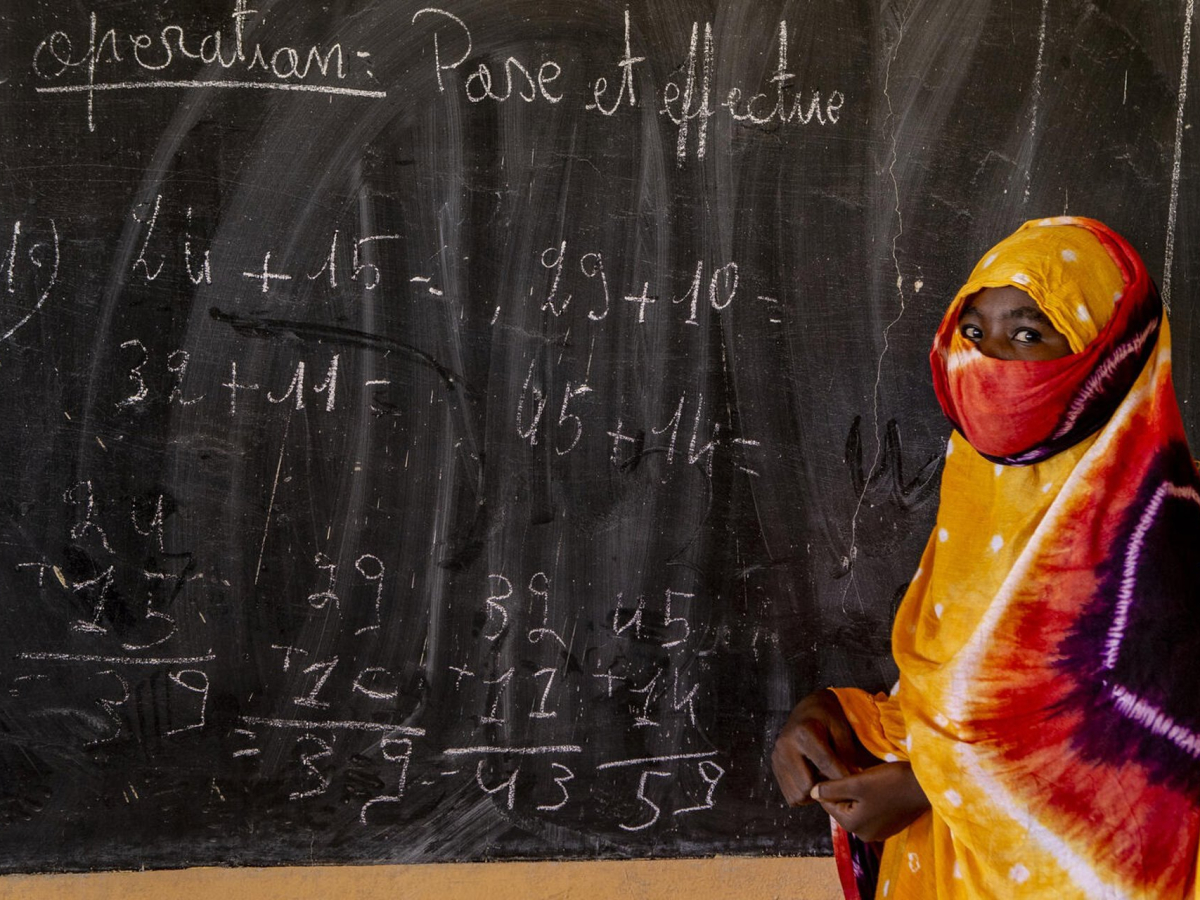 operation : Pose et effectue
1) 24 + 15 = , 29 + 10 =
32 + 11 = 45 + 14 =
24 29 32 45
+ 15 + 10 + 11 + 14
= 39 = 39 = 43 59